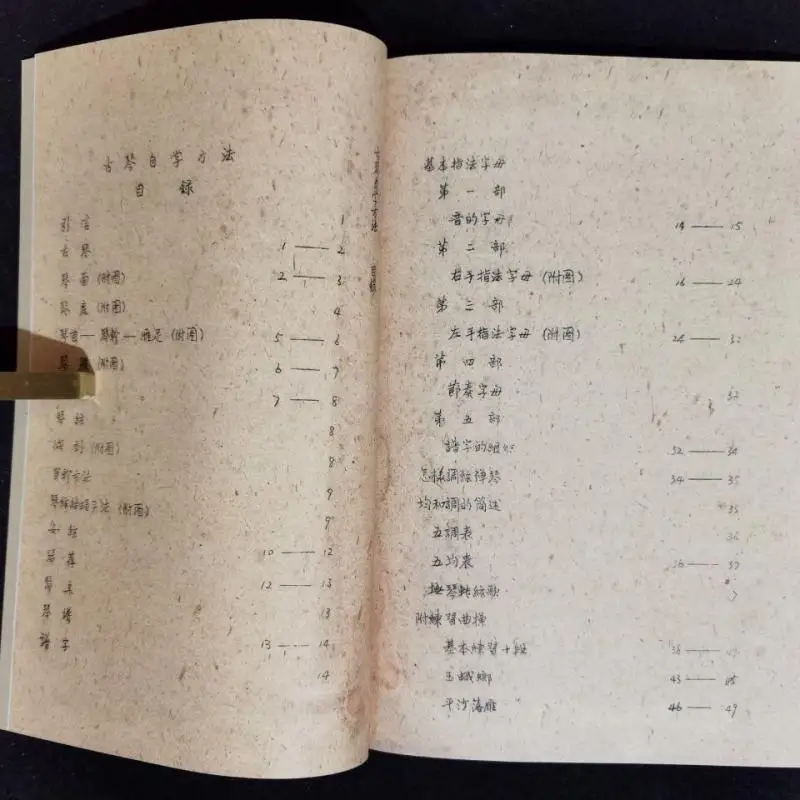 古琴自学方法
目録
引言 1
古琴 1——2
琴面(附图) 2——3
琴底(附图) 4
琴首—琴軫—雁足(附图) 5——6
琴 (附图) 6——7
7——8
琴絃 8
(附图) 8
方法 9
方法(附图) 9
安絃
琴薦 10——12
琴 12——13
琴譜 13
譜字 13——14
14
古琴自学方法 目録
基本指法字母
第一部
音的字母 14——15
第二部
右手指法字母(附图) 16——24
第三部
左手指法字母(附图) 24——32
第四部
節奏字母 32
第五部
譜字的組织 32——34
怎樣調絃彈琴 34——35
均和調的简述 35
五調表 36
五均表 36——37
琴轉絃歌
附練習曲操
基本練習十段 38——
玉蛾郎 43——45
平沙落雁 46——49